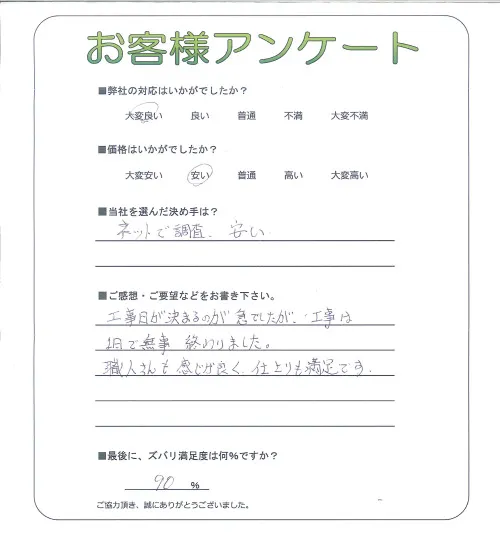 お客様アンケート
■弊社の対応はいかがでしたか？
大変良い 良い 普通 不満 大変不満
■価格はいかがでしたか？
大変安い 安い 普通 高い 大変高い
■当社を選んだ決め手は？
ネットで調査、安い
■ご感想・ご要望などをお書き下さい。
工事日が決まるのが急でしたが、工事は
1日で無事 終わりました。
職人さんも感じが良く、仕上りも満足です。
■最後に、ズバリ満足度は何%ですか？
90 %
ご協力頂き、誠にありがとうございました。